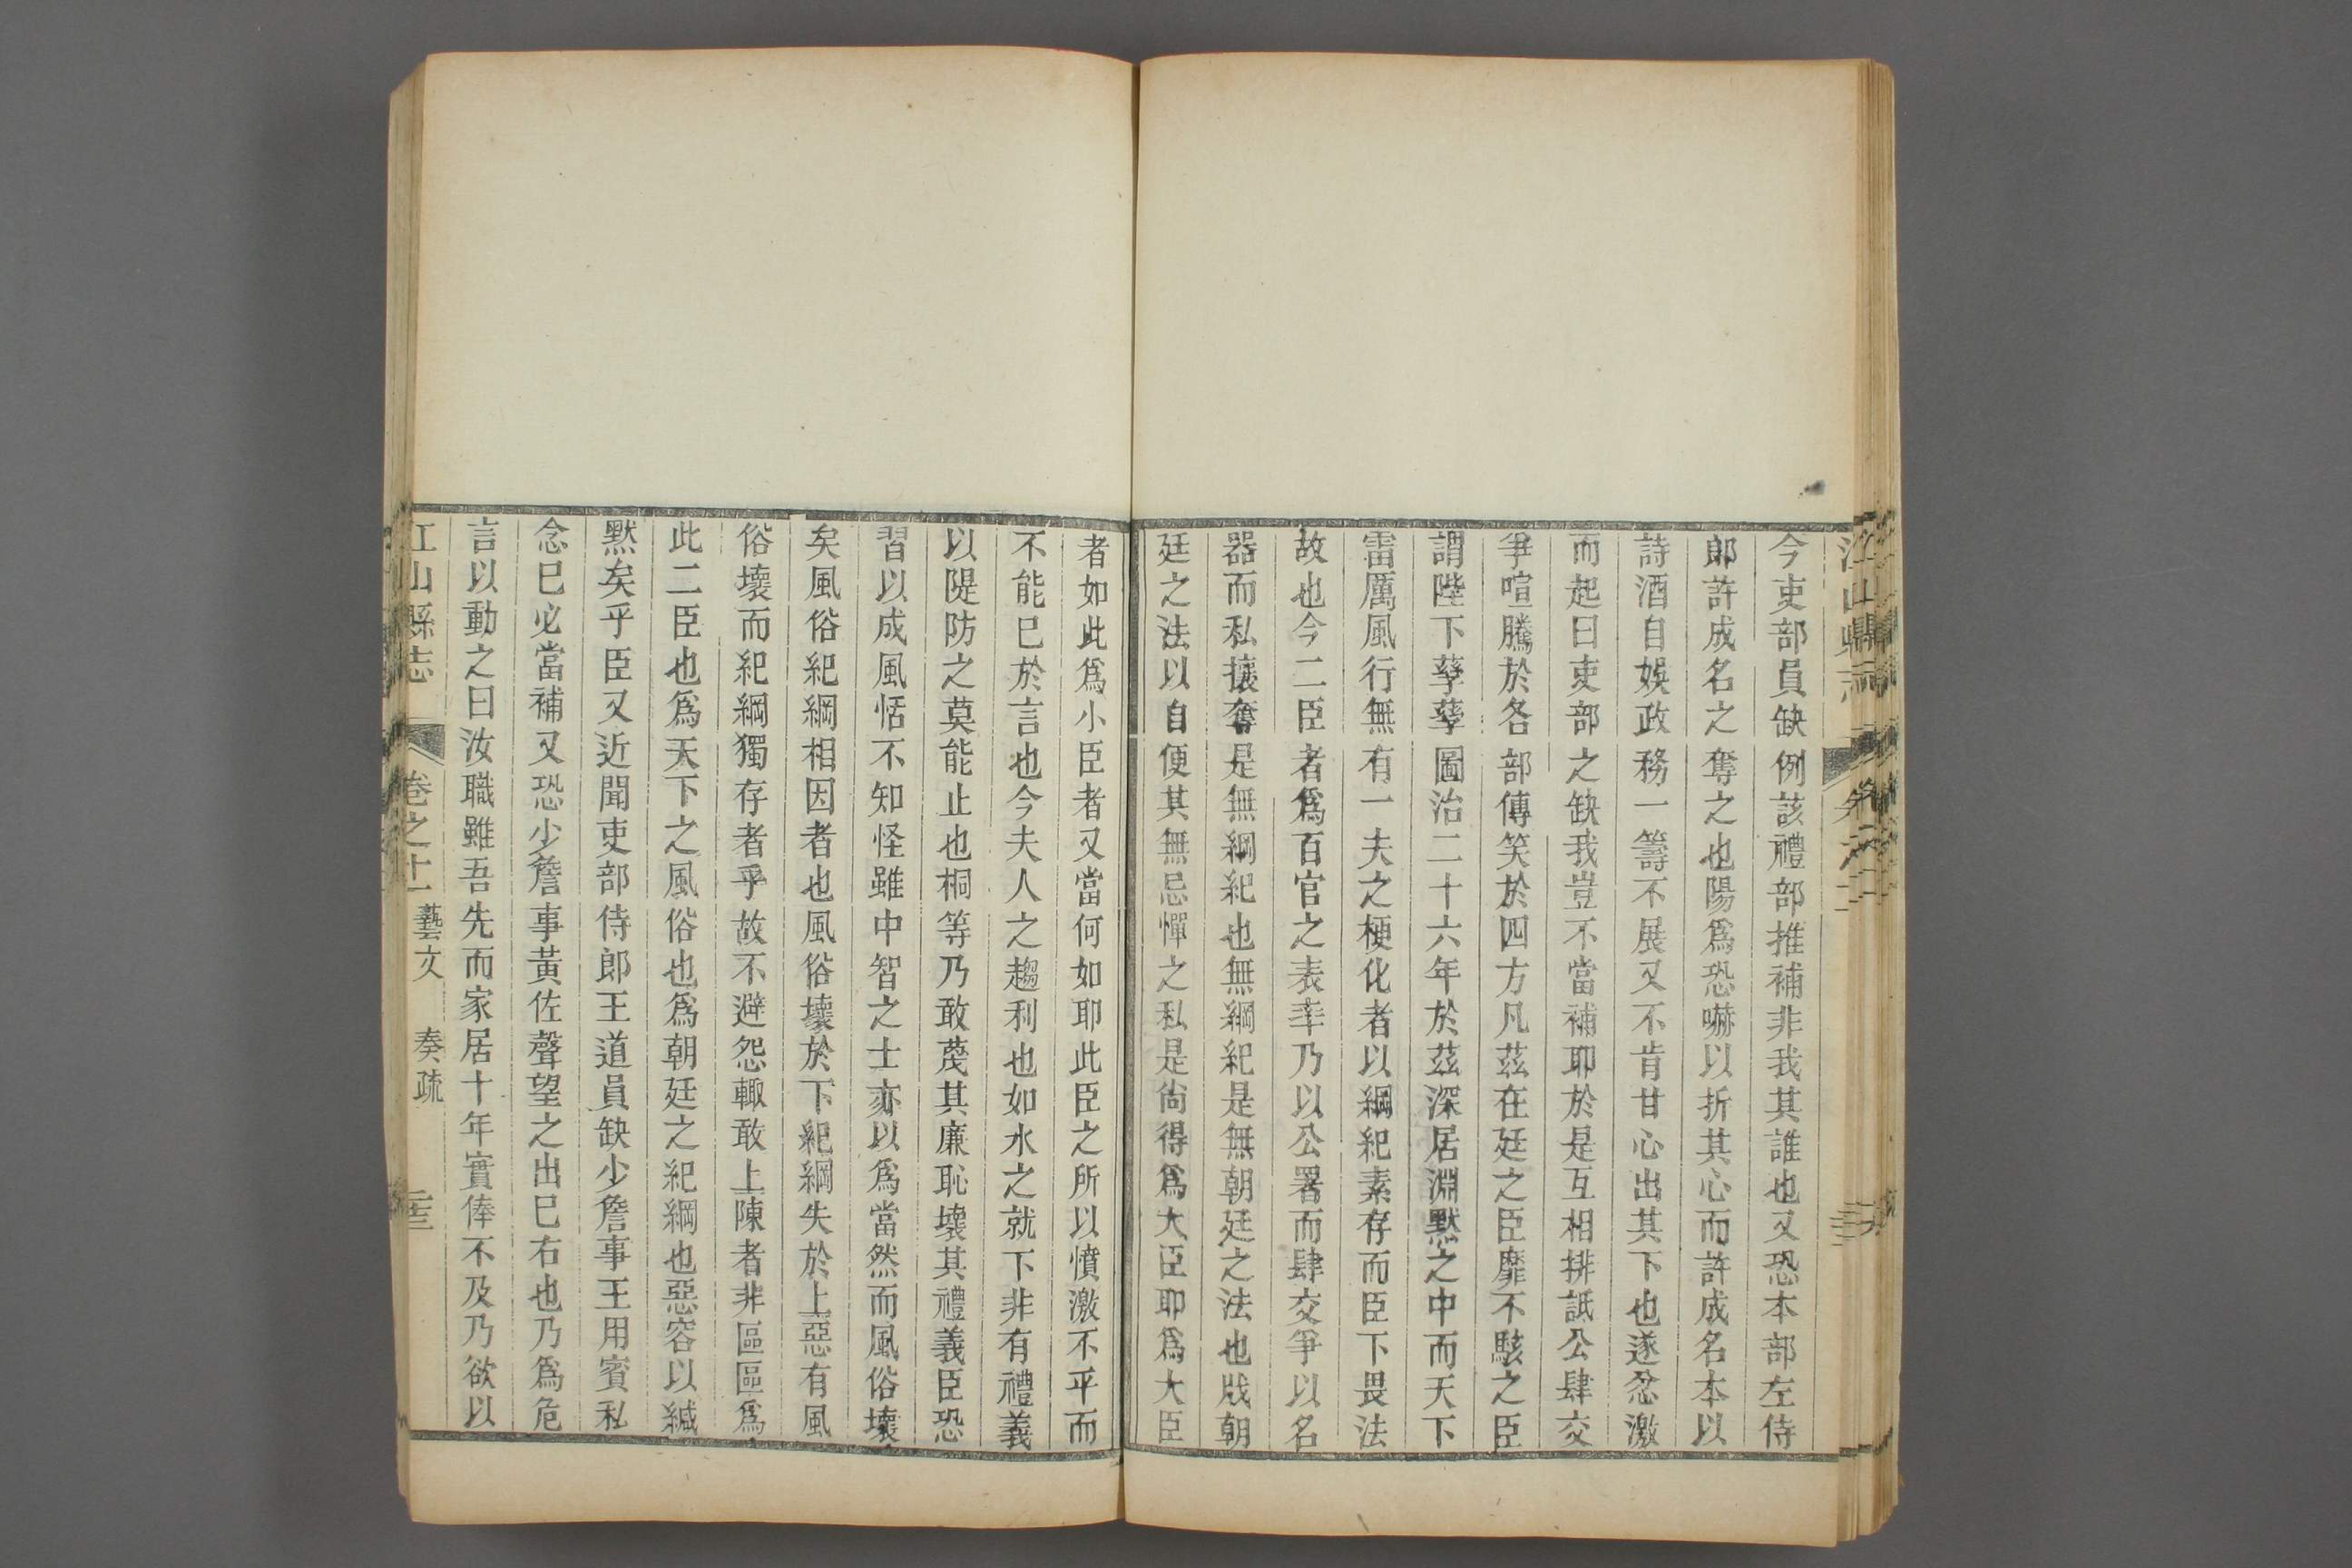 今吏部員缺例該禮部推補非我其誰也又恐本部左侍
郎許成名之奪之也陽爲恐嚇以折其心而許成名本以
詩酒自娛政務一籌不展又不肯甘心出其下也遂忿激
而起曰吏部之缺我豈不當補耶於是互相排詆公肆交
爭喧騰於各部傳笑於四方凡茲在廷之臣靡不駭之臣
謂陛下孳孳圖治二十六年於茲深居淵默之中而天下
雷厲風行無有一夫之梗化者以綱紀素存而臣下畏法
故也今二臣者爲百官之表率乃以公署而肆交爭以名
器而私攘奪是無綱紀也無綱紀是無朝廷之法也戕朝
廷之法以自便其無忌憚之私是尙得爲大臣耶爲大臣
者如此爲小臣者又當何如耶此臣之所以憤激不平而
不能已於言也今夫人之趨利也如水之就下非有禮義
以隄防之莫能止也桐等乃敢蔑其廉恥壞其禮義臣恐
習以成風恬不知怪雖中智之士亦以爲當然而風俗壞
矣風俗紀綱相因者也風俗壞於下紀綱失於上惡有風
俗壞而紀綱獨存者乎故不避怨輙敢上陳者非區區爲
此二臣也爲天下之風俗也爲朝廷之紀綱也惡容以緘
默矣乎臣又近聞吏部侍郎王道員缺少詹事王用賓私
念已必當補又恐少詹事黃佐聲望之出已右也乃爲危
言以動之曰汝職雖吾先而家居十年實俸不及乃欲以
江山縣志 卷之十一 藝文 奏疏